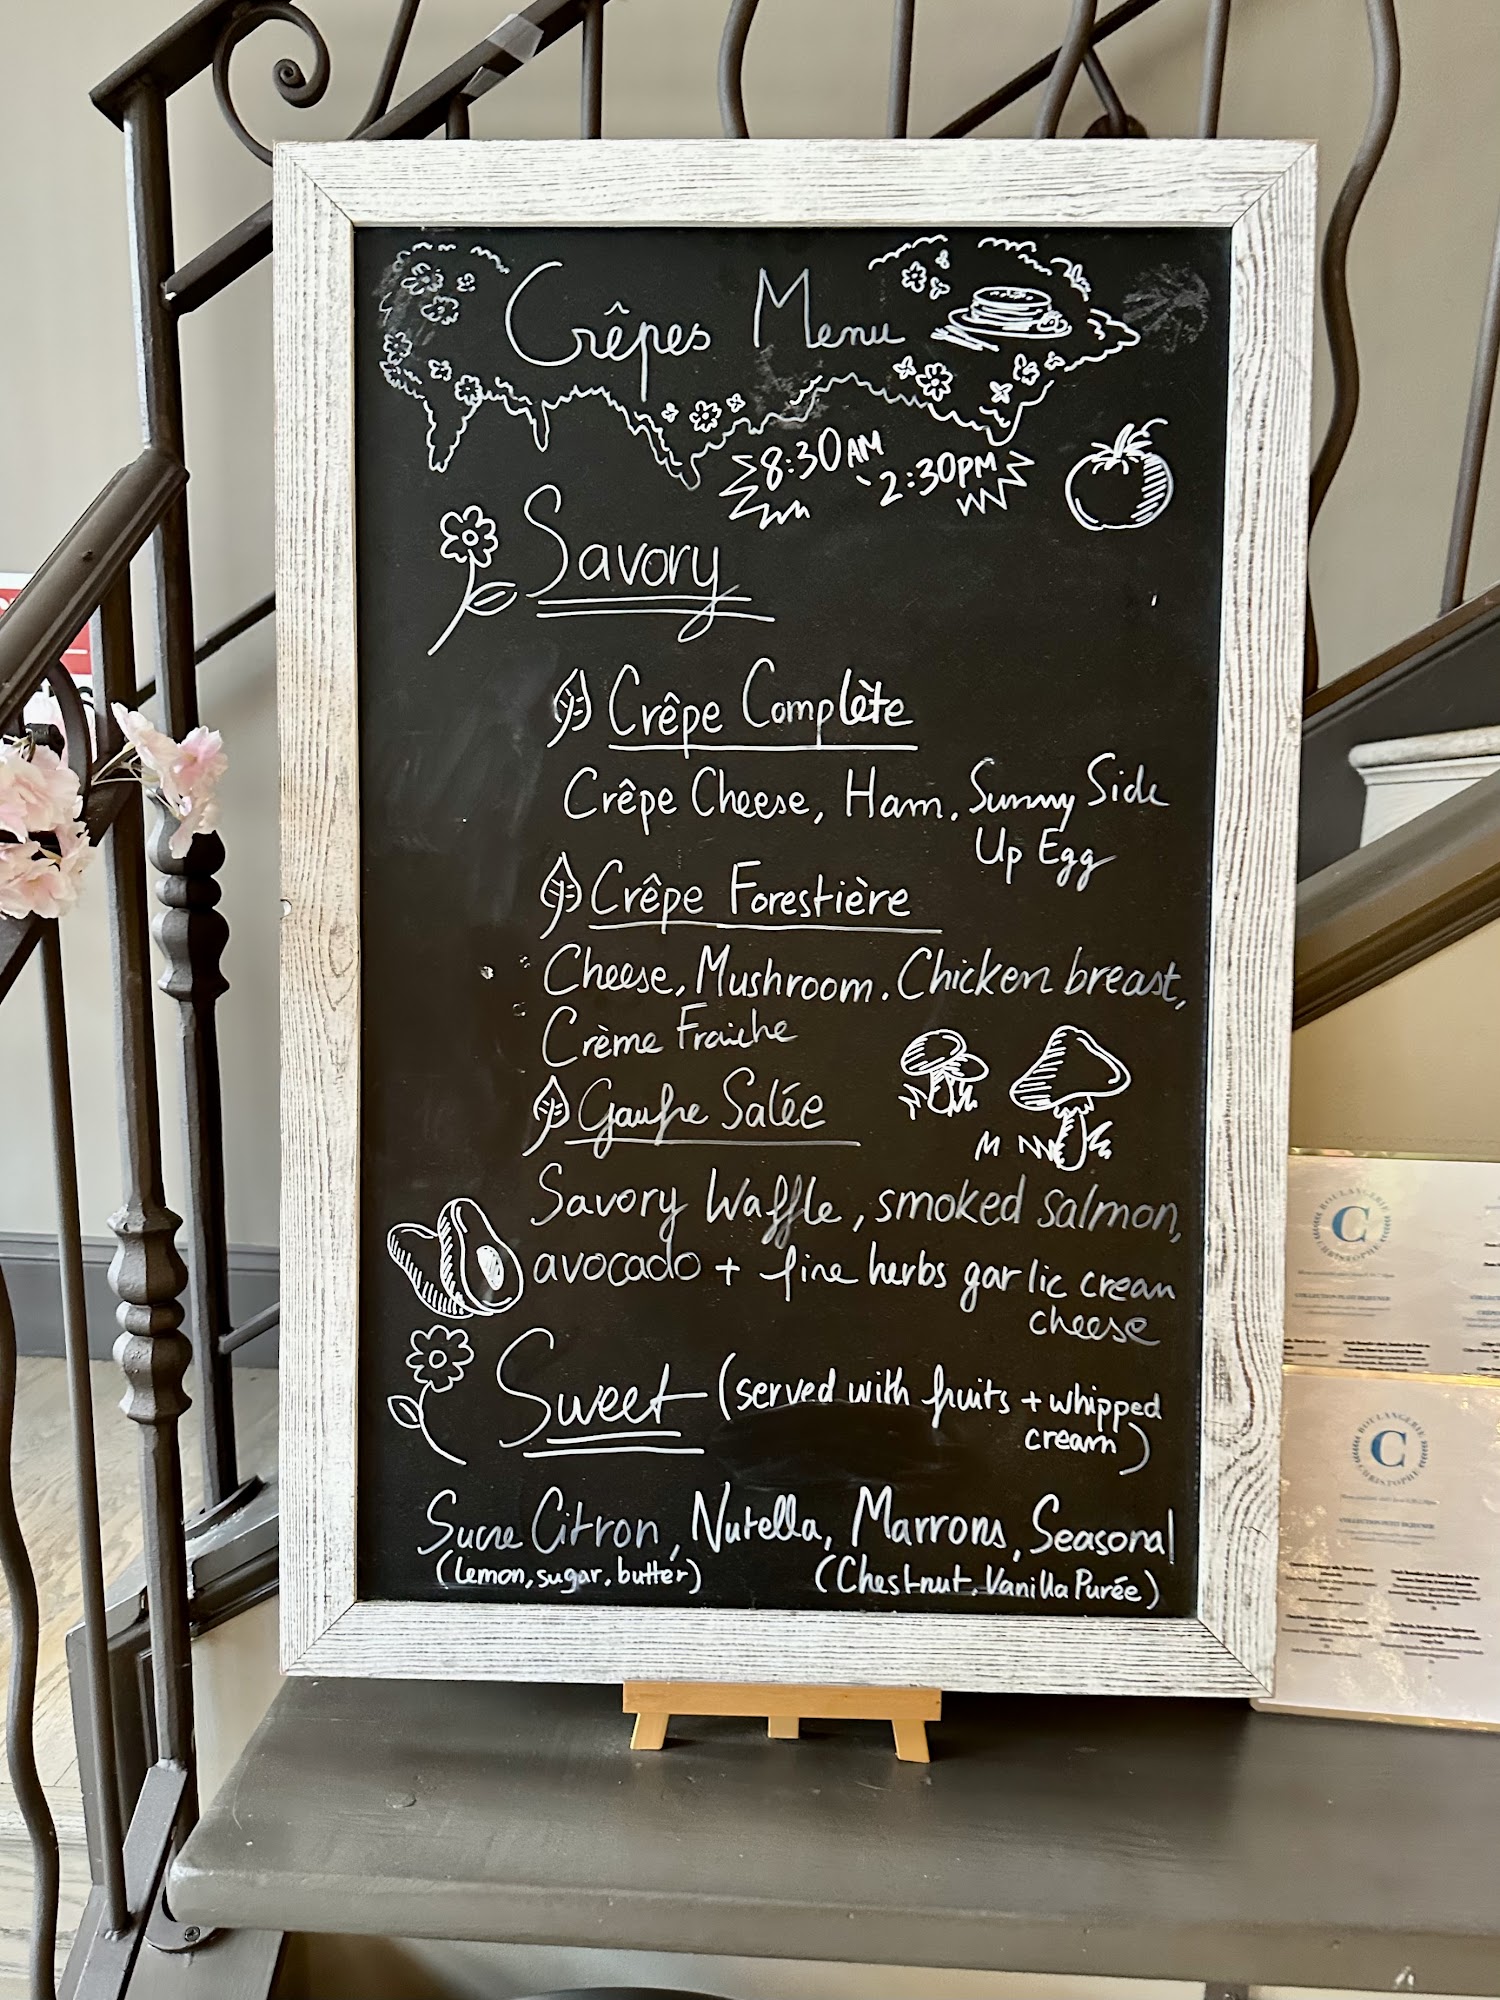 Crêpes Menu
8:30AM
-2:30PM
Savory
Crêpe Complète
Crêpe Cheese, Ham, Sunny Side
Up Egg
Crêpe Forestière
Cheese, Mushroom, Chicken breast,
Crème Fraiche
Gaufre Salée
Savory Waffle, smoked salmon,
avocado + fine herbs garlic cream
cheese
Sweet (served with fruits + whipped
cream)
Sucre Citron, Nutella, Marrons, Seasonal
(Lemon, sugar, butter) (Chestnut, Vanilla Purée)
BOULANGERIE
C
CHRISTOPHE
BOULANGERIE
C
CHRISTOPHE